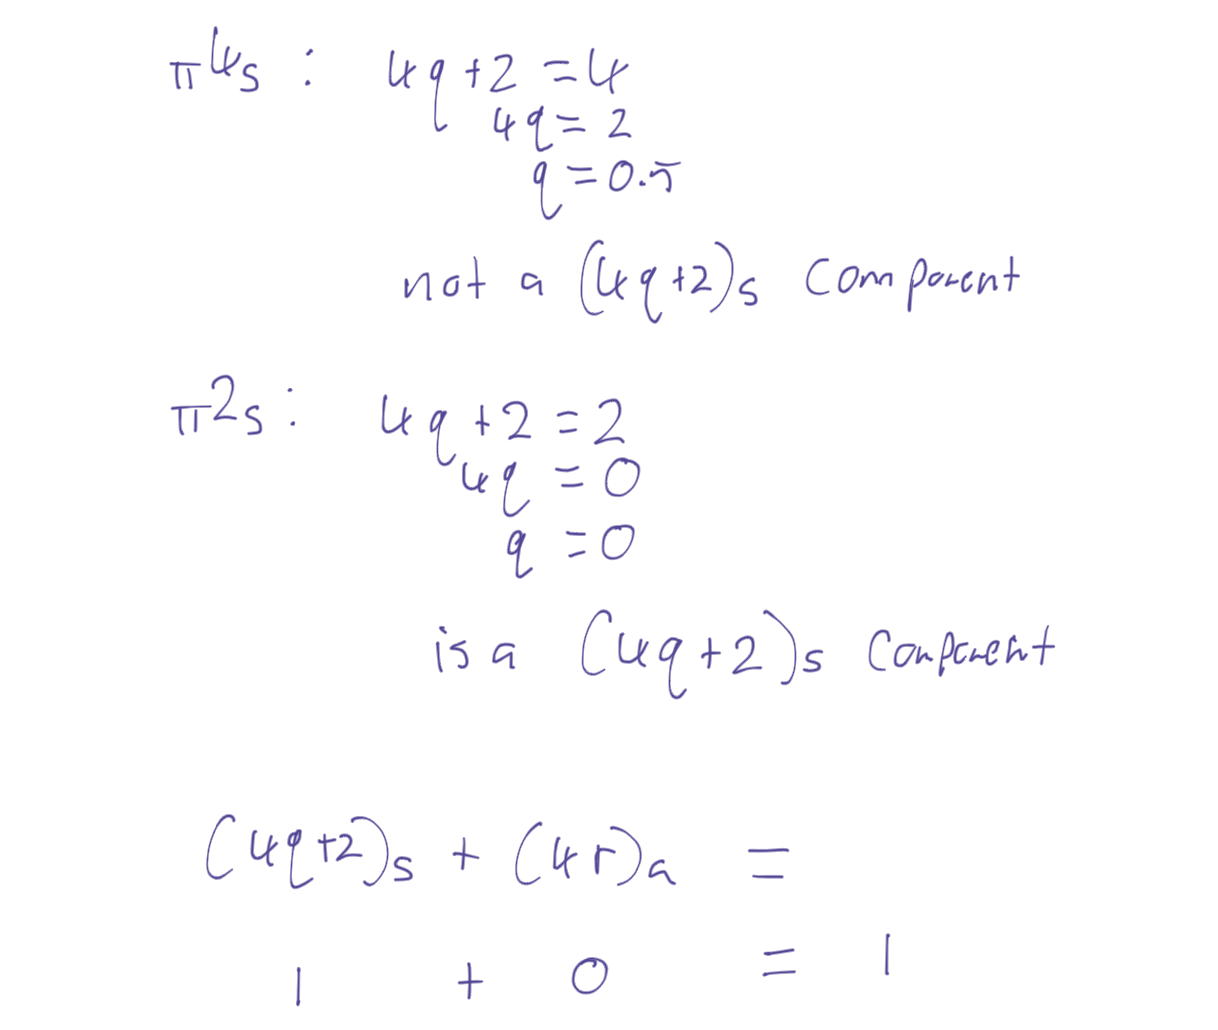 π4s : 4q+2 = 4
4q = 2
q = 0.5
not a (4q+2)s component
π2s : 4q+2 = 2
4q = 0
q = 0
is a (4q+2)s component
(4q+2)s + (4r)a =
1 + 0 = 1